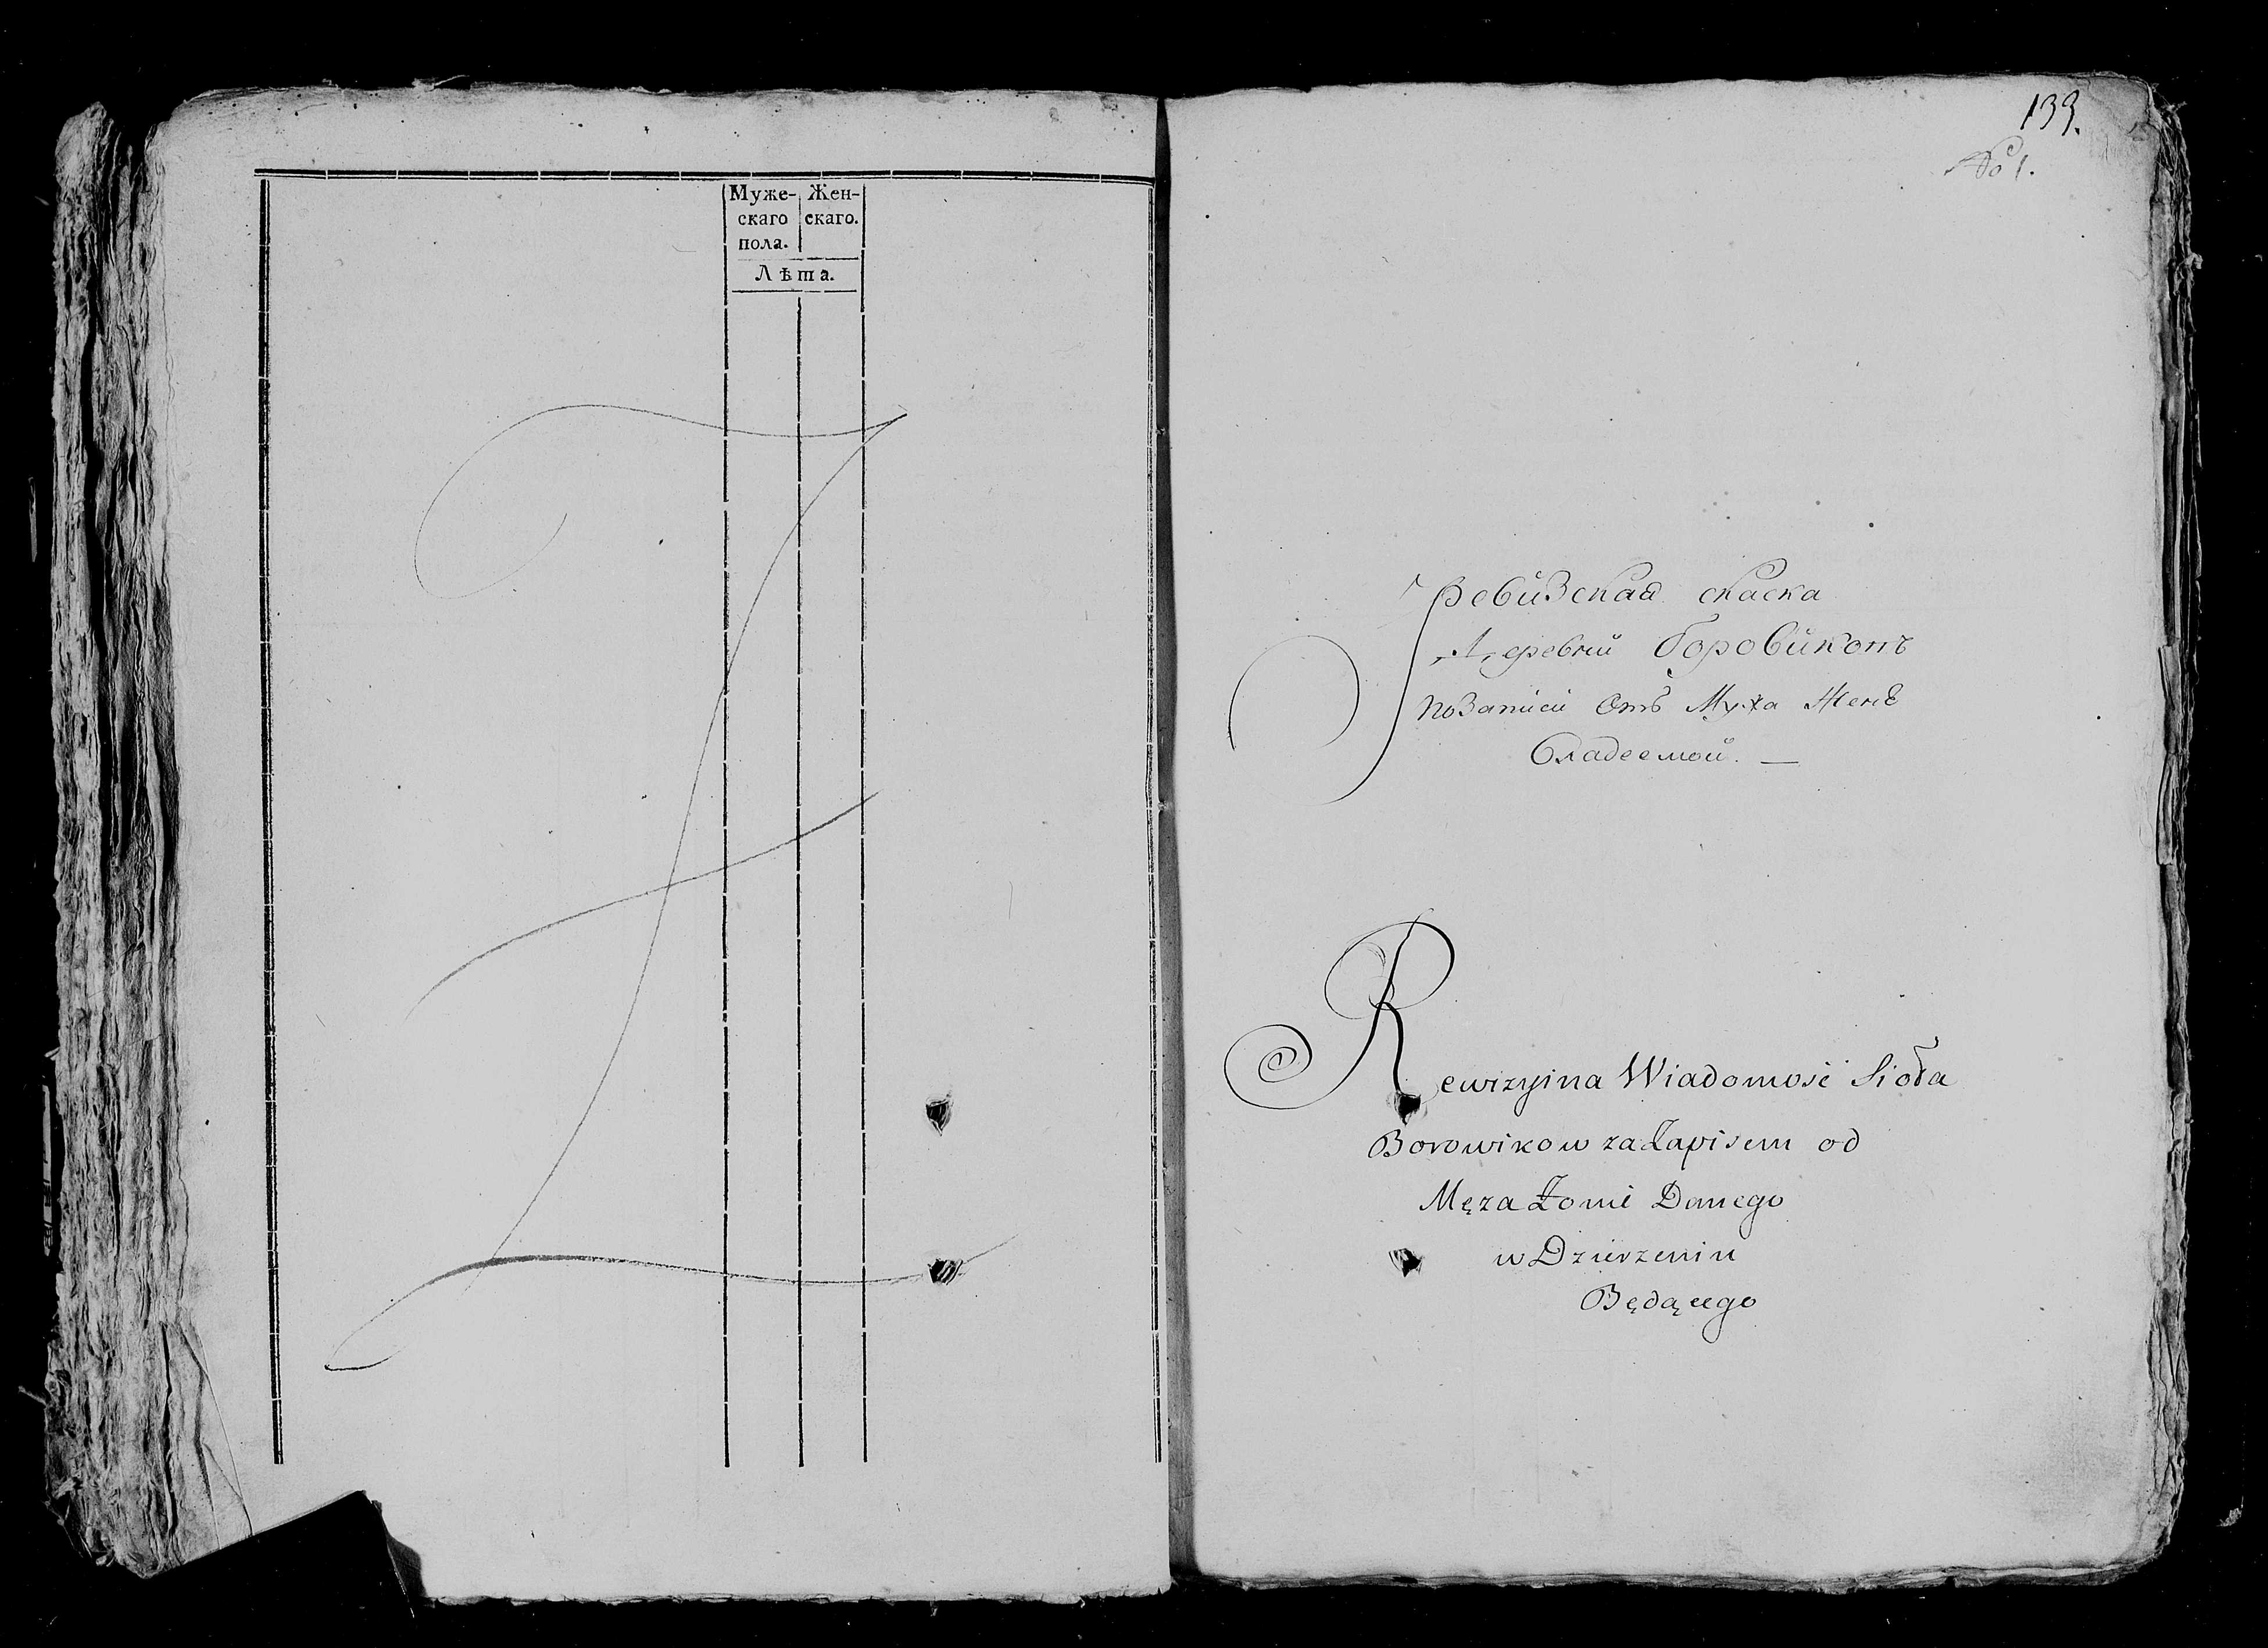 Муже-
скаго
пола.
Жен-
скаго.
Лѣта.
139.
№ 1.
Ревизская скаска
Деревни Боровиковъ
по Записи Отъ Мужа Женѣ
владеемой. —
Rewizyina Wiadomość Sioła
Borowikow za Zapisem od
Męża Żonie Danego
w Dzierzeniu
Będącego